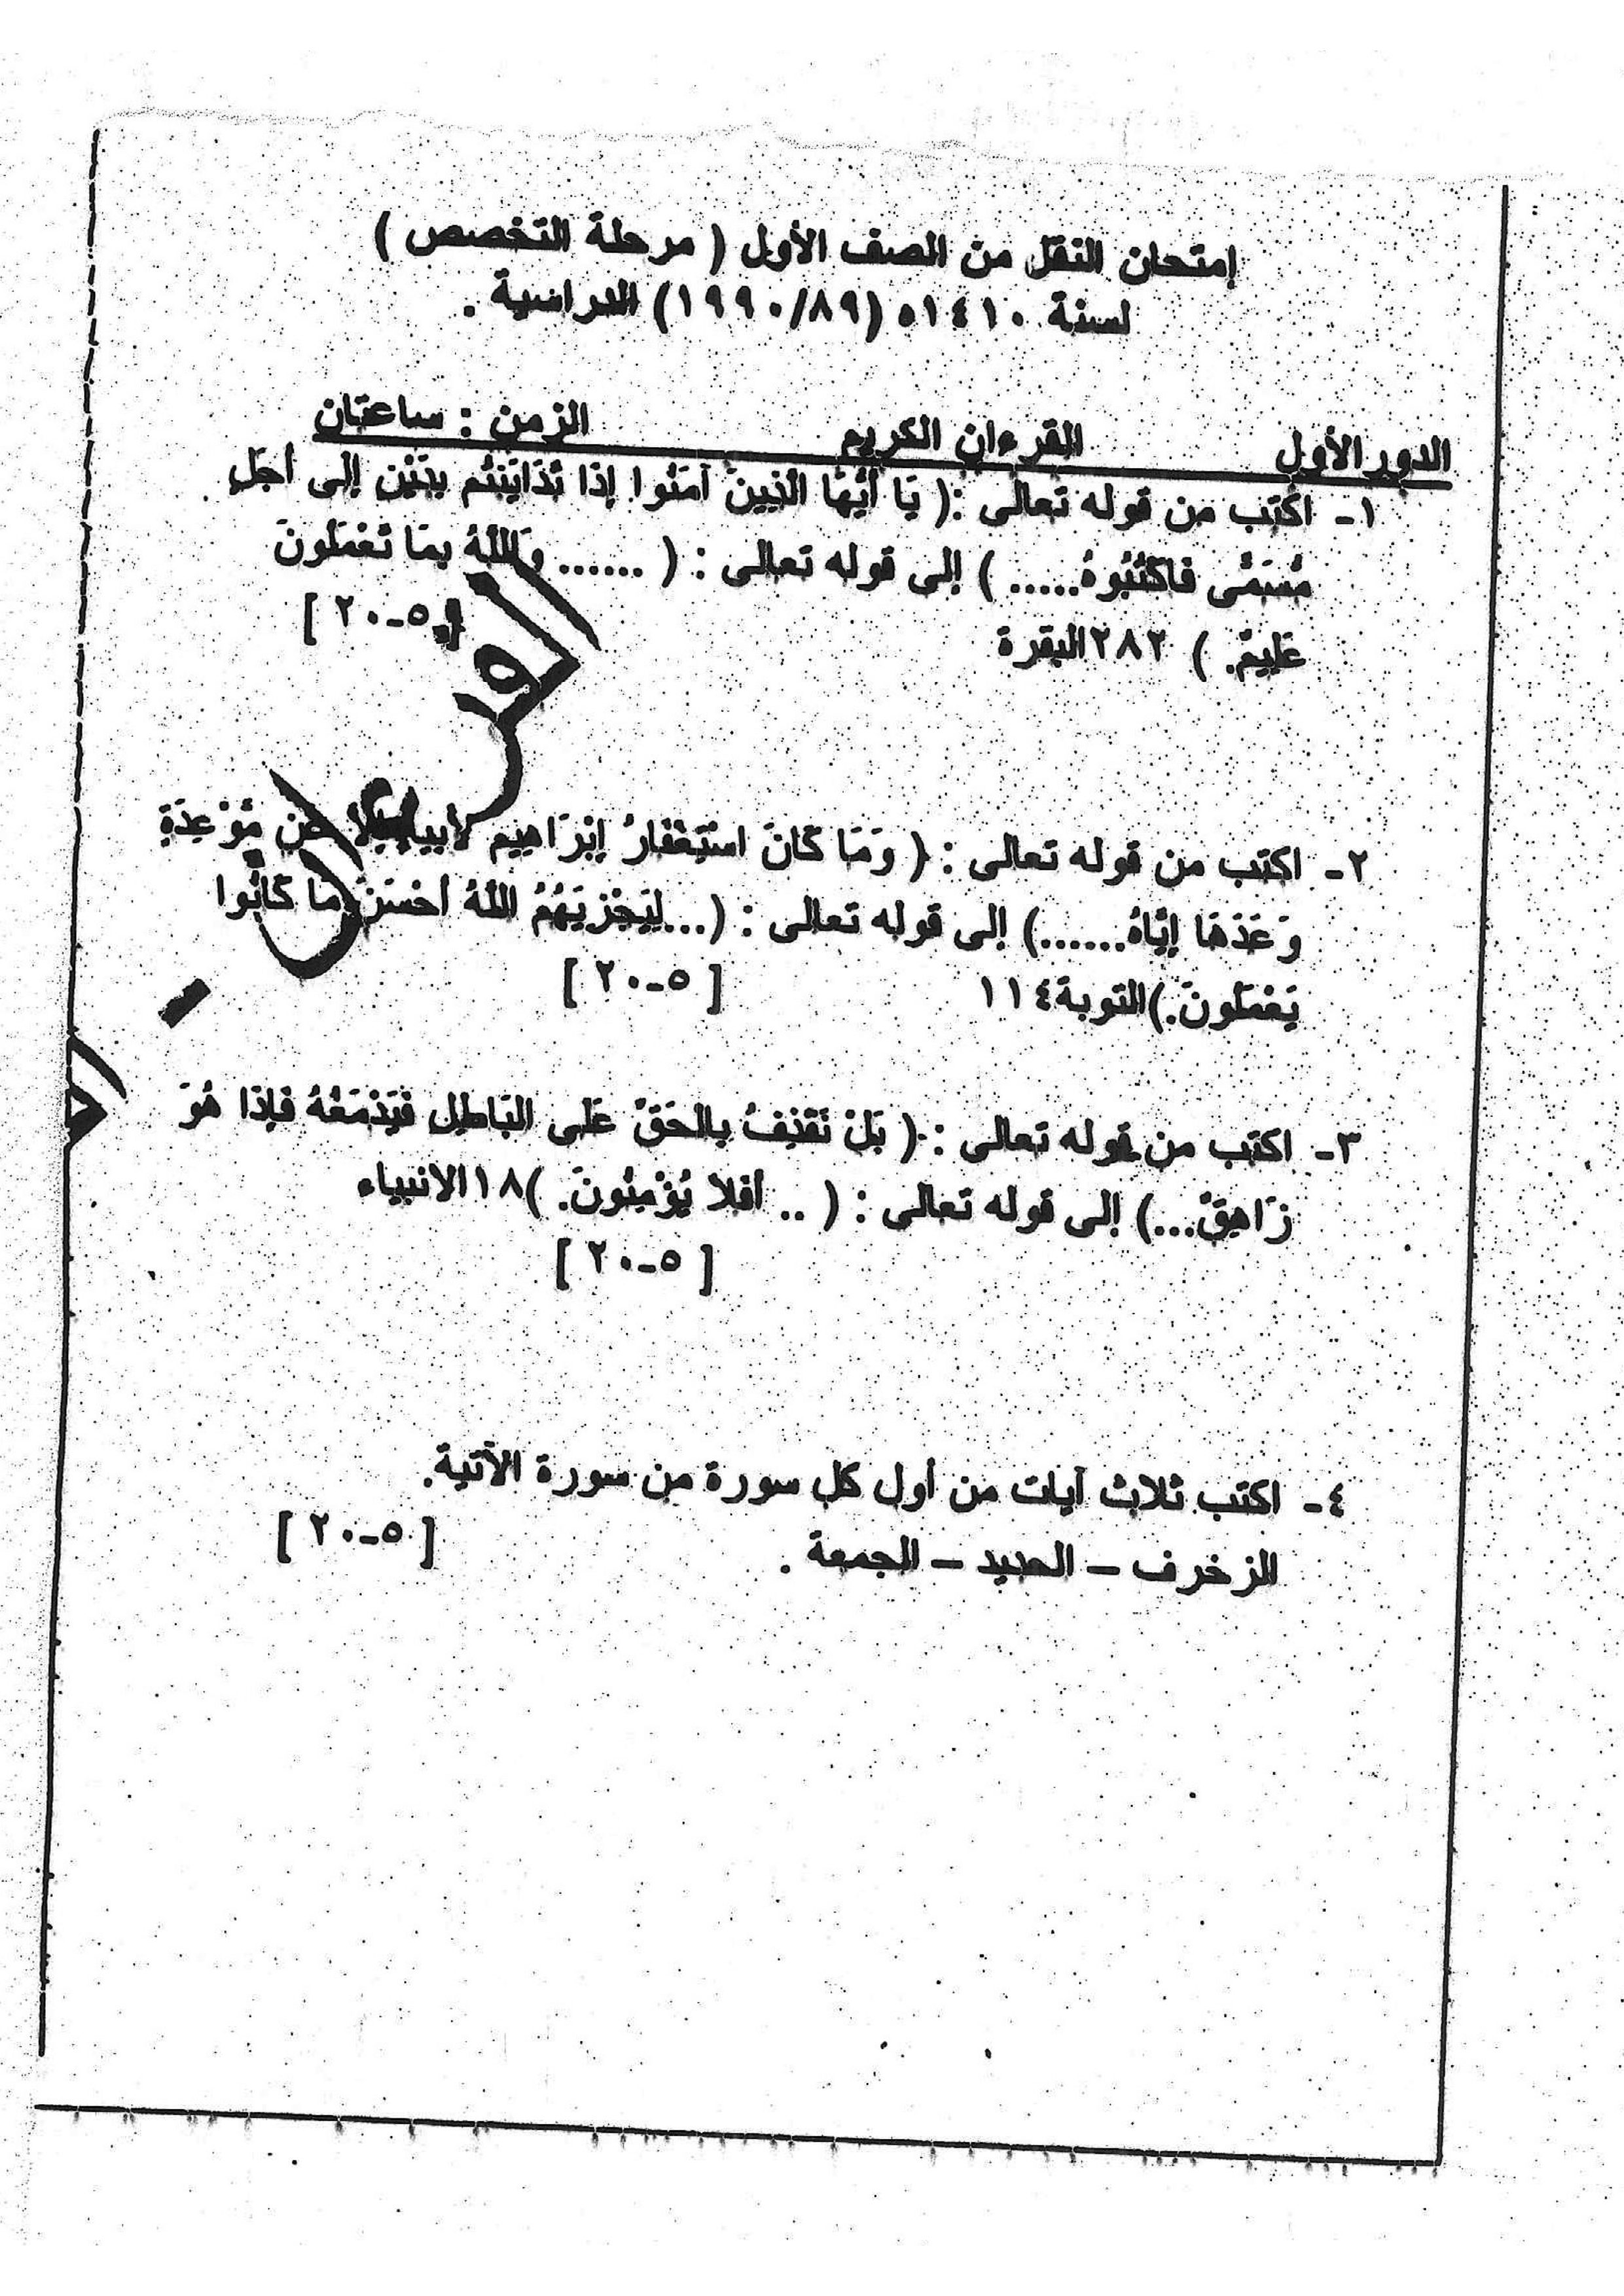 إمتحان النقل من الصف الأول ( مرحلة التخصص )
لسنة ١٤١٠ه (١٩٩٠/٨٩) الدراسية .
الدور الأول القرءان الكريم الزمن : ساعتان
١- اكتب من قوله تعالى :( يَا أَيُّهَا الَّذِينَ آمَنُوا إِذَا تَدَايَنتُم بِدَيْنٍ إِلَى أَجَلٍ
مُّسَمًّى فَاكْتُبُوهُ..... ) إلى قوله تعالى : ( ...... وَاللَّهُ بِمَا تَعْمَلُونَ
عَلِيمٌ. ) ٢٨٢البقرة [ ٥-٢٠ ]
٢- اكتب من قوله تعالى : ( وَمَا كَانَ اسْتِغْفَارُ إِبْرَاهِيم لأبيه إلا عَن مَّوْعِدَةٍ
وَعَدَهَا إِيَّاهُ......) إلى قوله تعالى : (...لِيَجْزِيَهُمُ اللَّهُ أَحْسَنَ مَا كَانُوا
يَعْمَلُونَ.)التوبة١١٤ [ ٥-٢٠ ]
٣- اكتب من قوله تعالى : ( بَلْ نَقْذِفُ بِالْحَقِّ عَلَى الْبَاطِلِ فَيَدْمَغُهُ فَإِذَا هُوَ
زَاهِقٌ...) إلى قوله تعالى : ( .. أَفَلا يُؤْمِنُونَ. )١٨الانبياء
[ ٥-٢٠ ]
٤- اكتب ثلاث آيات من أول كل سورة من سورة الآتية.
الزخرف – الحديد – الجمعة . [ ٥-٢٠ ]